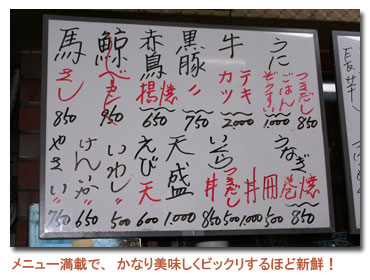 うに
つまだし 850
ごはん
ぞうすい 1,000
牛
テキ
カツ 2000
黒豚 〃 750
赤鳥 揚焼 650
鯨 べーこん 950
馬 さし 850
うなぎ
焼 850
巻 500
丼
天盛 1,000
えび天 600
いわし〃 500
やさい〃 750
長芋
メニュー満載で、かなり美味しくビックリするほど新鮮！